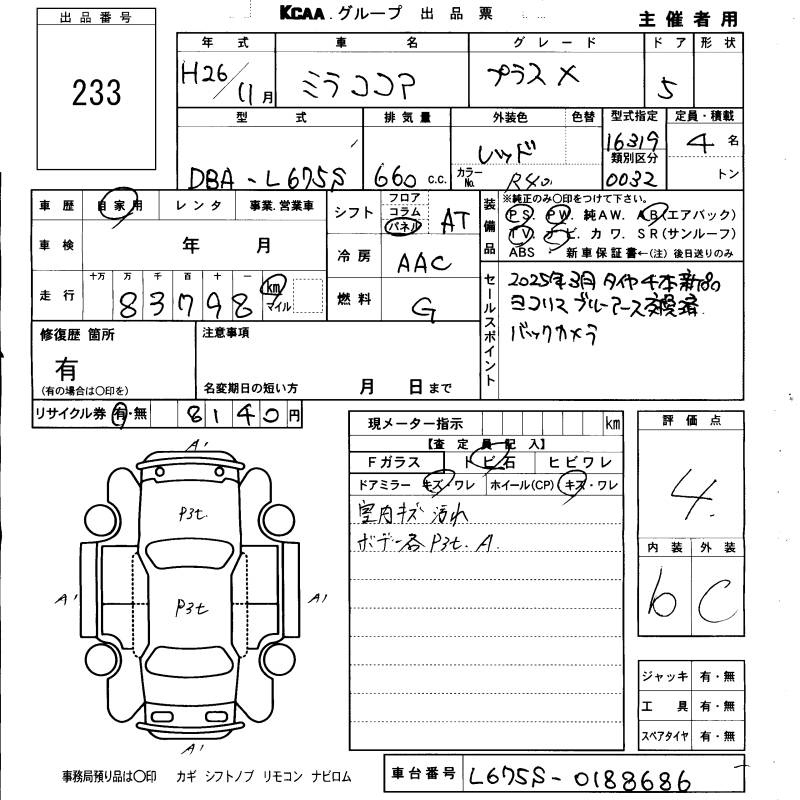 出品番号
233
KCAA.グループ 出品票
主催者用
年式 車名 グレード ドア 形状
H26/11月 ミラココア プラスX 5
型式 排気量 外装色 色替 型式指定 定員・積載
DBA-L675S 660 c.c. レッド カラーNo. R40 16319 類別区分 0032 4名 トン
車歴 自家用 レンタ 事業.営業車
車検 年 月
走行 十万 万 千 百 十 一
83798 km マイル
シフト フロア コラム パネル AT
冷房 AAC
燃料 G
装備品 ※純正のみ○印をつけて下さい。
PS. PW. 純AW. AB(エアバック)
TV. ナビ. カワ. SR(サンルーフ)
ABS 新車保証書←(注)後日送りのみ
セールスポイント
2025年3月 タイヤ4本新品
ヨコハマ ブルーアース交換済.
バックカメラ
修復歴 箇所
有
(有の場合は○印を)
注意事項
名変期日の短い方 月 日まで
リサイクル券 有・無 8140円
現メーター指示 km
【査定員記入】
Fガラス トビ石 ヒビワレ
ドアミラー キズ・ワレ ホイール(CP) キズ・ワレ
室内キズ 汚れ
ボデー各 P3t. A.
評価点
4.
内装 外装
b C
A'
P3t.
A' P3t A'
A'
ジャッキ 有・無
工具 有・無
スペアタイヤ 有・無
事務局預り品は○印 カギ シフトノブ リモコン ナビロム
車台番号 L675S-0188686